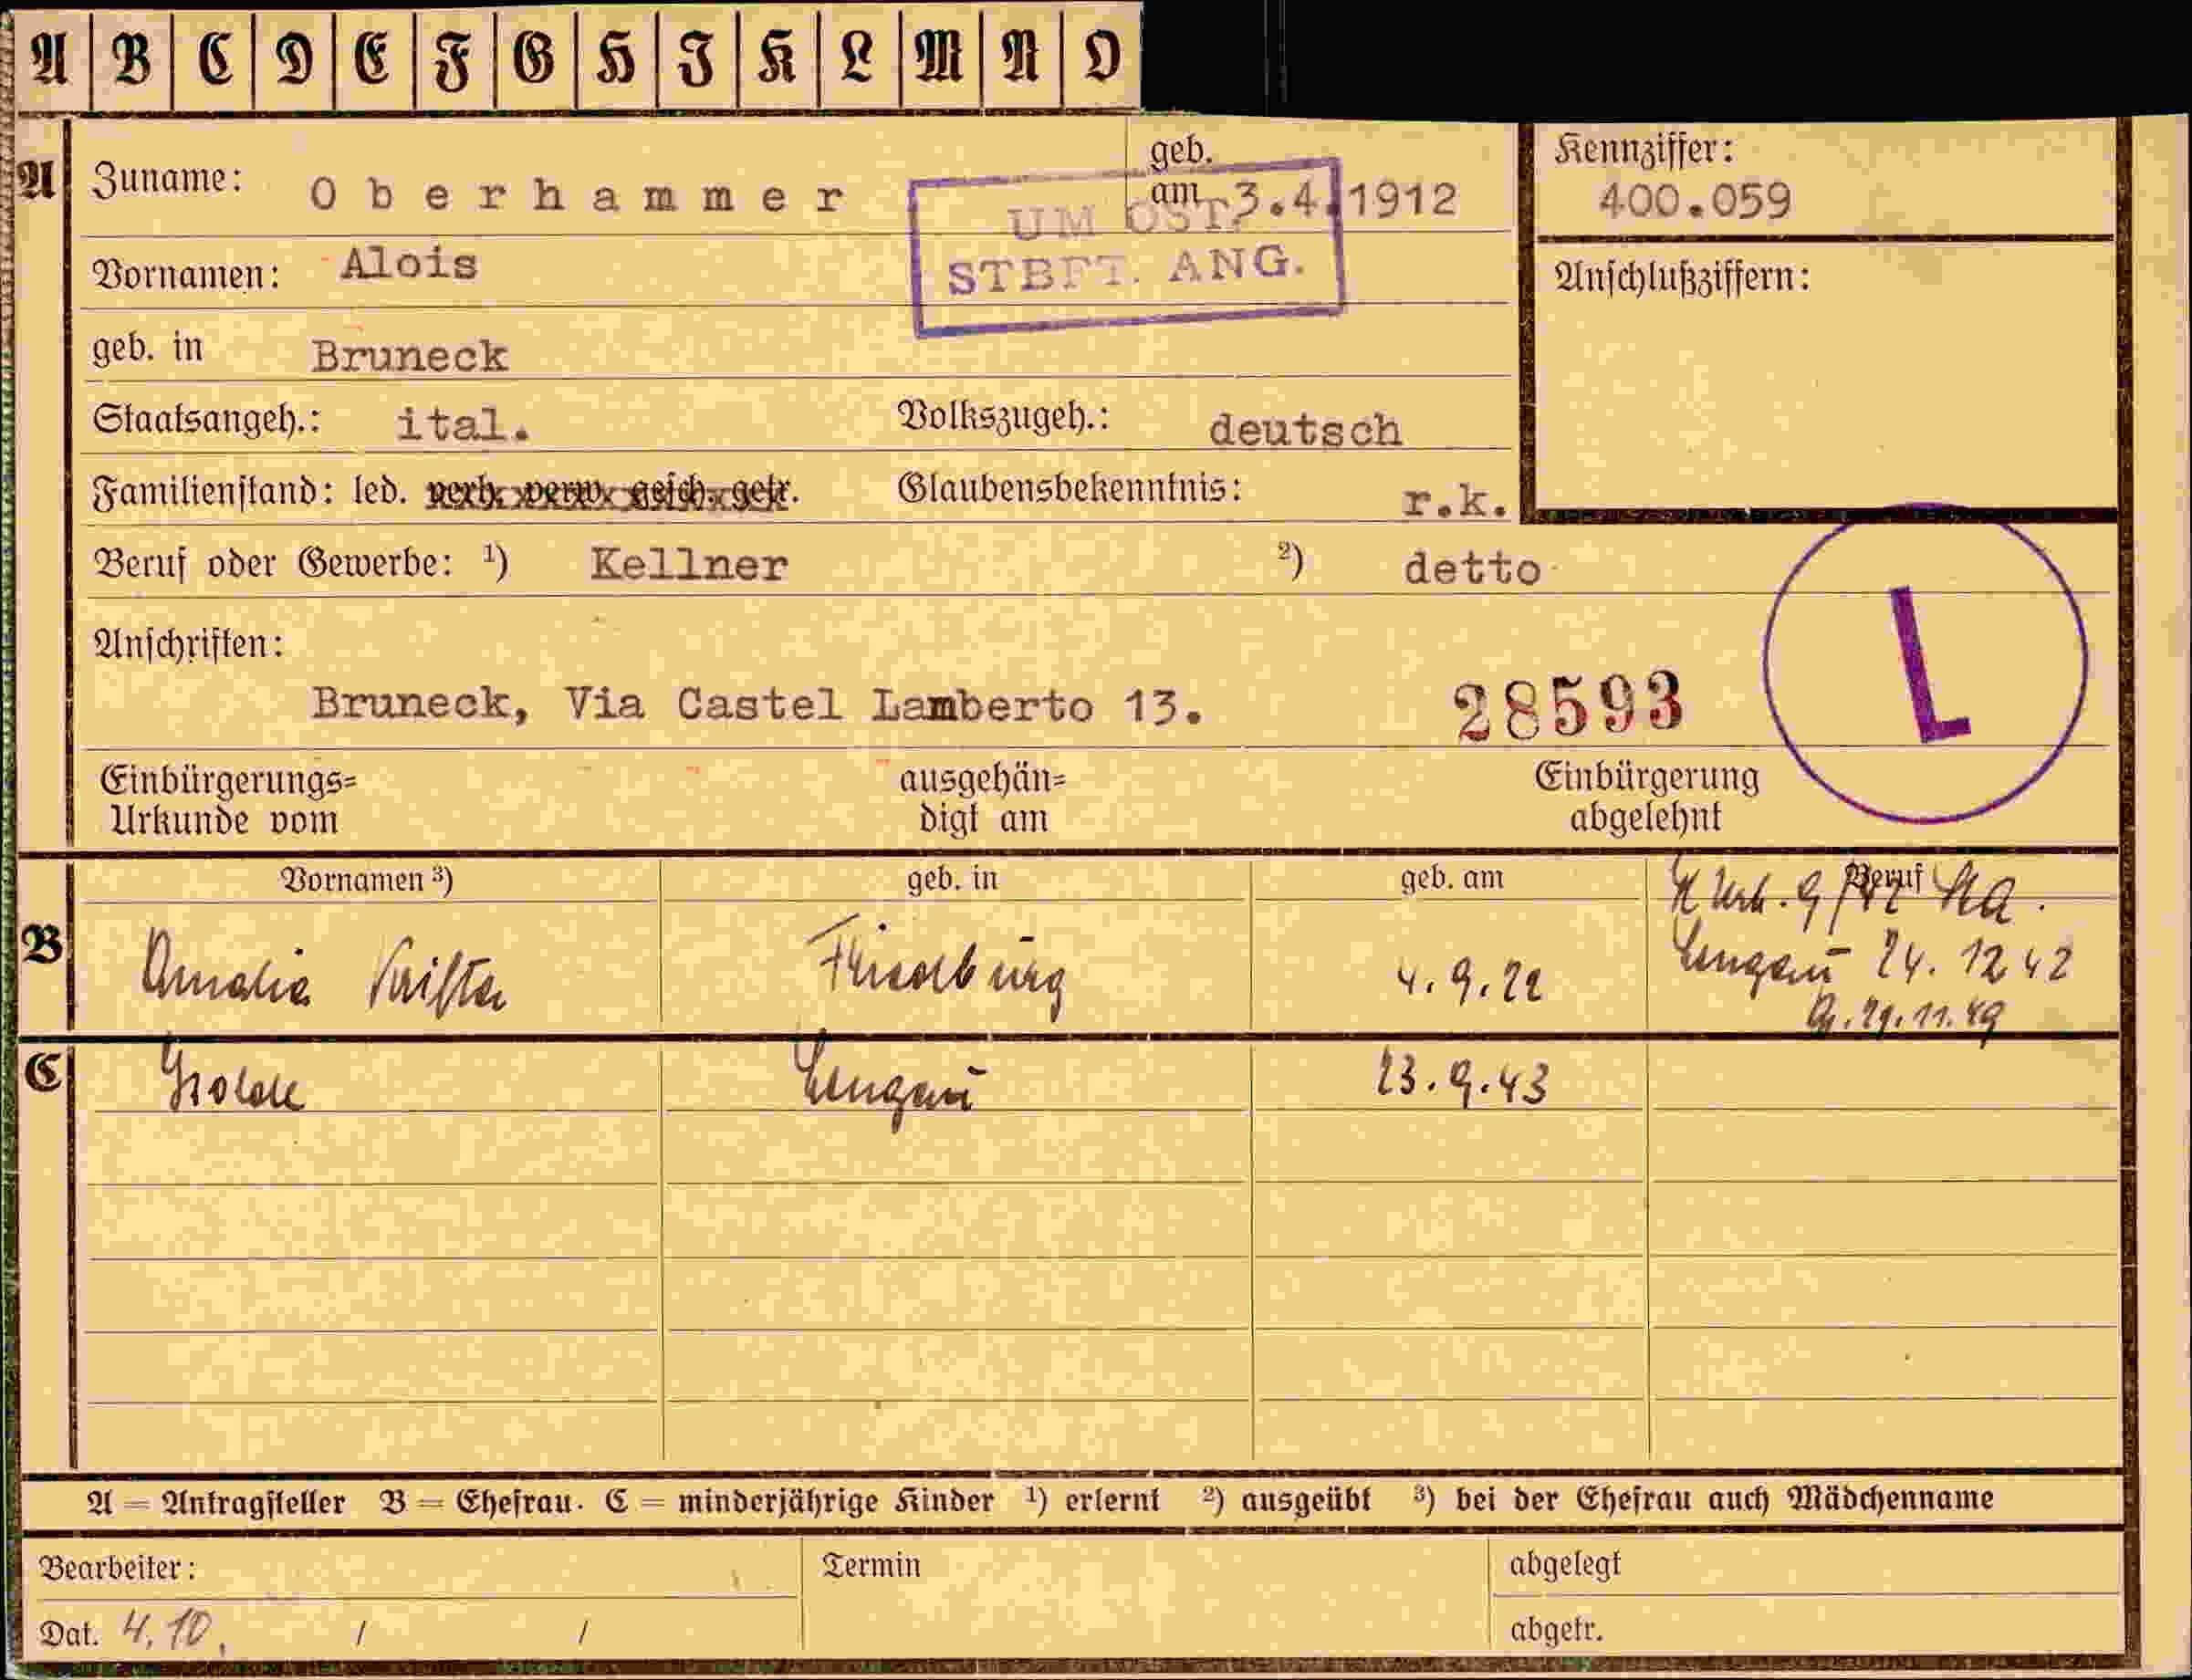 A B C D E F G H I K L M N O
A Zuname: Oberhammer geb. am 3.4.1912 Kennziffer: 400.059
UM ÖST. STBFT. ANG.
Vornamen: Alois Anschlußziffern:
geb. in Bruneck
Staatsangeh.: ital. Volkszugeh.: deutsch
Familienstand: led. verh. verw. gesch. getr. Glaubensbekenntnis: r.k.
Beruf oder Gewerbe: ¹) Kellner ²) detto
L
Anschriften:
Bruneck, Via Castel Lamberto 13. 28593
Einbürgerungs= ausgehän= Einbürgerung
Urkunde vom digt am abgelehnt
Vornamen ³) geb. in geb. am Beruf
B Amalia Friedburg 4.9.22 Lengau 24.12.42
29.11.49
C Isolde Lengau 23.9.43
A = Antragsteller B = Ehefrau. C = minderjährige Kinder ¹) erlernt ²) ausgeübt ³) bei der Ehefrau auch Mädchenname
Bearbeiter: Termin abgelegt
Dat. 4.10. / / abgetr.